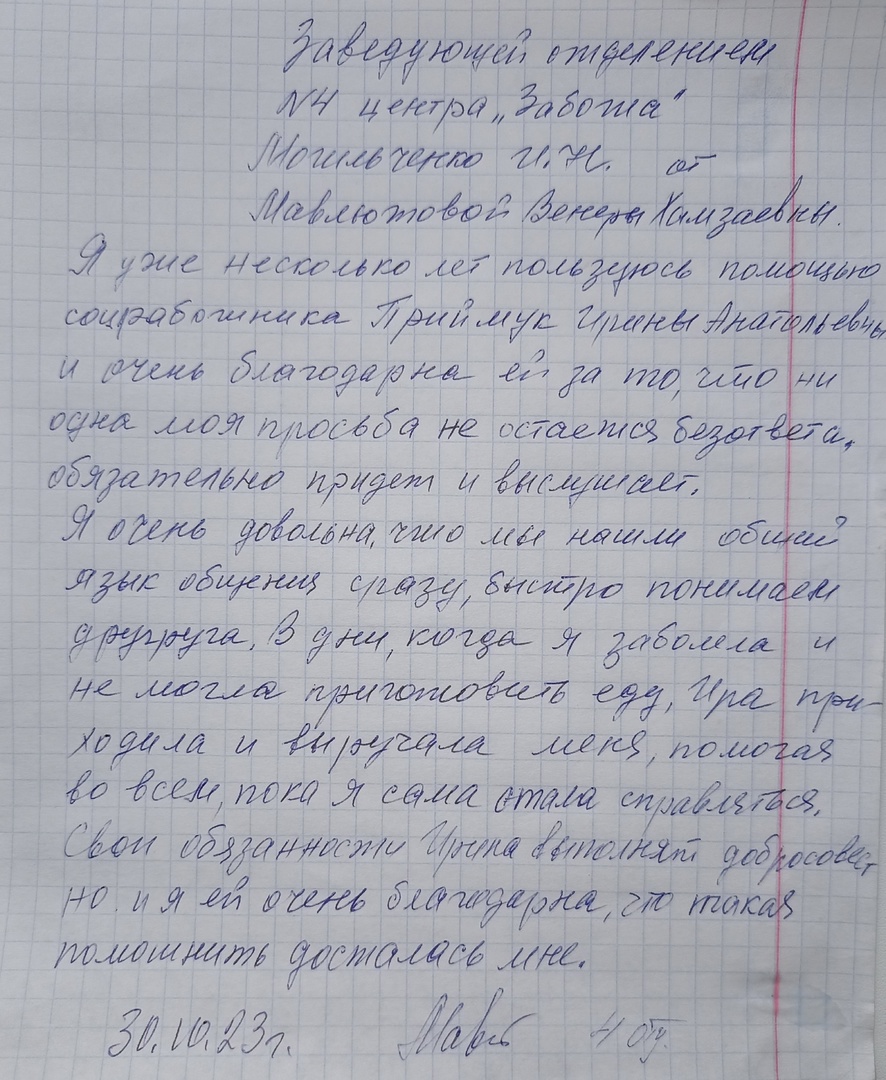 Заведующей отделением
N4 центра „Забота"
Могильченко И.Н. от
Мавлютовой Венеры Хамзаевны.
Я уже несколько лет пользуюсь помощью
соцработника Приймук Ирины Анатольевны
и очень благодарна ей за то, что ни
одна моя просьба не остается безответа,
обязательно придет и выслушает.
Я очень довольна, что мы нашли общий
язык общения сразу, быстро понимаем
другдруга. В дни, когда я заболела и
не могла приготовить еду, Ира при-
ходила и выручала меня, помогая
во всем, пока я сама стала справляться.
Свои обязанности Ирина выполнят добросовест
но и я ей очень благодарна, что такая
помошнить досталась мне.
30.10.23г. Мавл 4 отд.